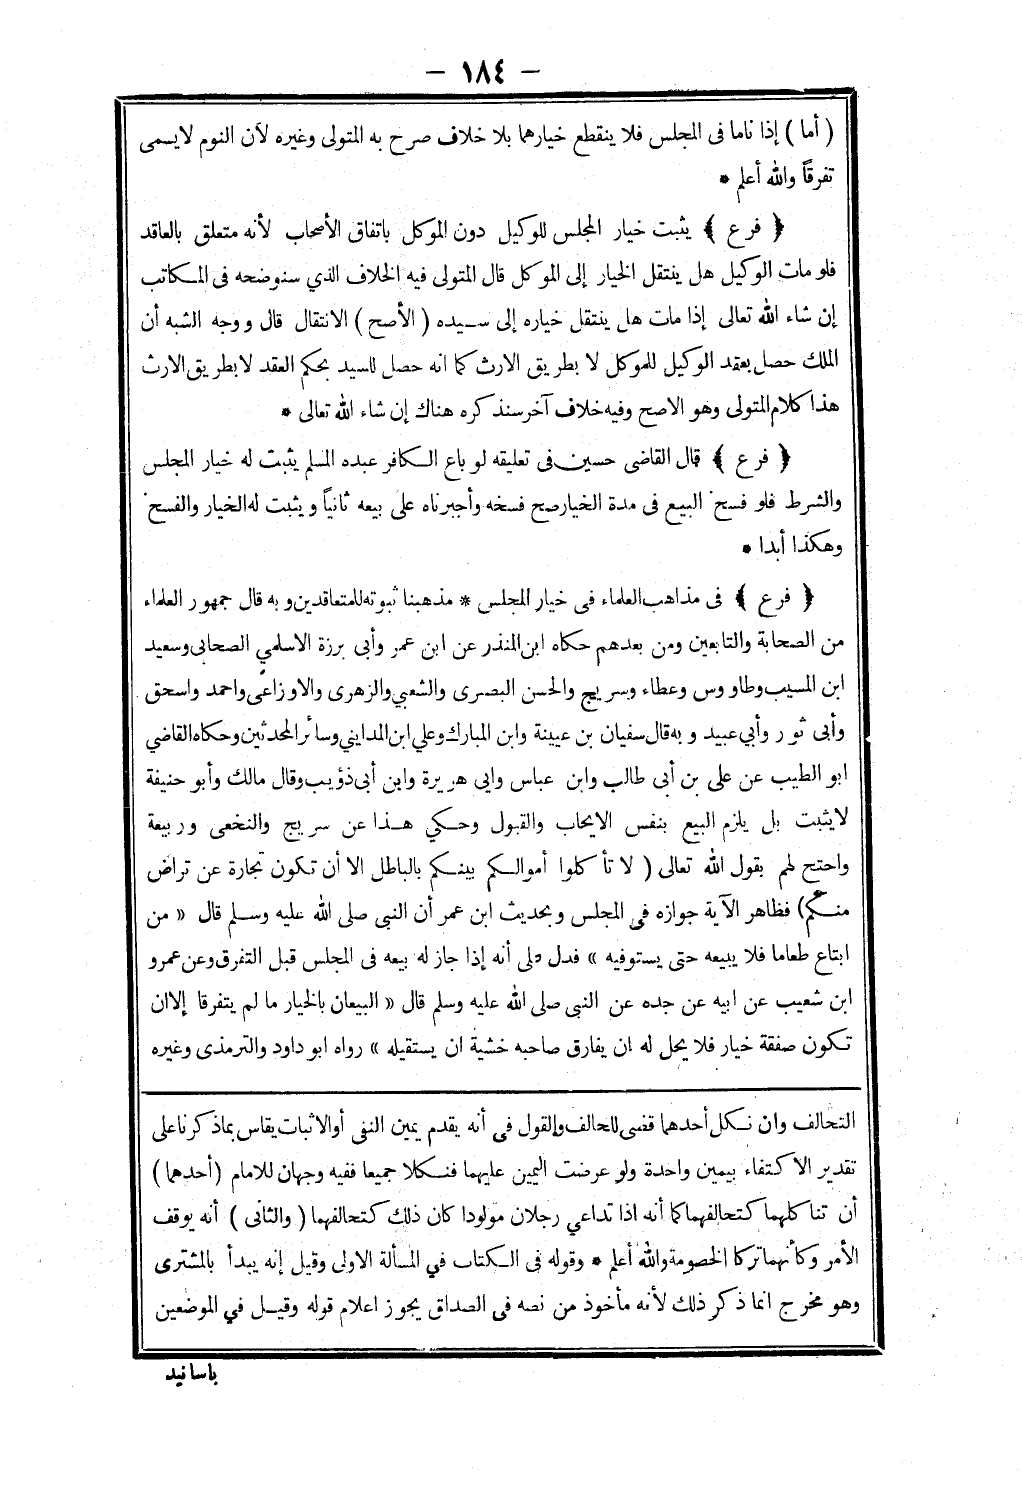 - ١٨٤ -
( أما ) إذا ناما فى المجلس فلا ينقطع خيارهما بلا خلاف صرح به المتولى وغيره لأن النوم لايسمى
تفرقاً والله أعلم *
﴿ فرع ﴾ يثبت خيار المجلس للوكيل دون الموكل باتفاق الأصحاب لأنه متعلق بالعاقد
فلو مات الوكيل هل ينتقل الخيار إلى الموكل قال المتولى فيه الخلاف الذي سنوضحه فى المكاتب
إن شاء الله تعالى إذا مات هل ينتقل خياره إلى سيده ( الأصح ) الانتقال قال ووجه الشبه أن
الملك حصل بعقد الوكيل للموكل لا بطريق الارث كما انه حصل للسيد بحكم العقد لا بطريق الارث
هذا كلام المتولى وهو الاصح وفيه خلاف آخر سنذكره هناك إن شاء الله تعالى *
﴿ فرع ﴾ قال القاضى حسين فى تعليقه لو باع الكافر عبده المسلم يثبت له خيار المجلس
والشرط فلو فسخ البيع فى مدة الخيار صح فسخه وأجبرناه على بيعه ثانياً ويثبت له الخيار والفسخ
وهكذا أبدا *
﴿ فرع ﴾ فى مذاهب العلماء فى خيار المجلس * مذهبنا ثبوته للمتعاقدين وبه قال جمهور العلماء
من الصحابة والتابعين ومن بعدهم حكاه ابن المنذر عن ابن عمر وأبى برزة الاسلمي الصحابى وسعيد
ابن المسيب وطاووس وعطاء وسريج والحسن البصرى والشعبي والزهرى والاوزاعى واحمد واسحق
وأبى ثور وأبي عبيد وبه قال سفيان بن عيينة وابن المبارك وعلي ابن المدايني وسائر المحدثين وحكاه القاضي
ابو الطيب عن على بن أبى طالب وابن عباس وابى هريرة وابن أبى ذؤيب وقال مالك وأبو حنيفة
لايثبت بل يلزم البيع بنفس الايجاب والقبول وحكي هذا عن سريج والنخعى وربيعة
واحتج لهم بقول الله تعالى ( لا تأكلوا أموالكم بينكم بالباطل الا أن تكون تجارة عن تراض
منكم ) فظاهر الآية جوازه فى المجلس وبحديث ابن عمر أن النبى صلى الله عليه وسلم قال « من
ابتاع طعاما فلا يبيعه حتى يستوفيه » فدل على أنه إذا جاز له بيعه فى المجلس قبل التفرق وعن عمرو
ابن شعيب عن ابيه عن جده عن النبى صلى الله عليه وسلم قال « البيعان بالخيار ما لم يتفرقا إلا ان
تكون صفقة خيار فلا يحل له ان يفارق صاحبه خشية ان يستقيله » رواه ابو داود والترمذى وغيره
التحالف وان نكل أحدهما قضى للحالف والقول فى أنه يقدم يمين النفى أو الاثبات يقاس بما ذكرنا على
تقدير الاكتفاء بيمين واحدة ولو عرضت اليمين عليهما فنكلا جميعا ففيه وجهان للامام ( أحدهما )
أن تناكلهما كتحالفهما كما أنه اذا تداعي رجلان مولودا كان ذلك كتحالفهما ( والثانى ) أنه يوقف
الأمر وكأنهما تركا الخصومة والله أعلم * وقوله فى الكتاب في المسألة الاولى وقيل إنه يبدأ بالمشترى
وهو مخرج انما ذكر ذلك لأنه مأخوذ من نصه فى الصداق يجوز اعلام قوله وقيل في الموضعين
باسانيد